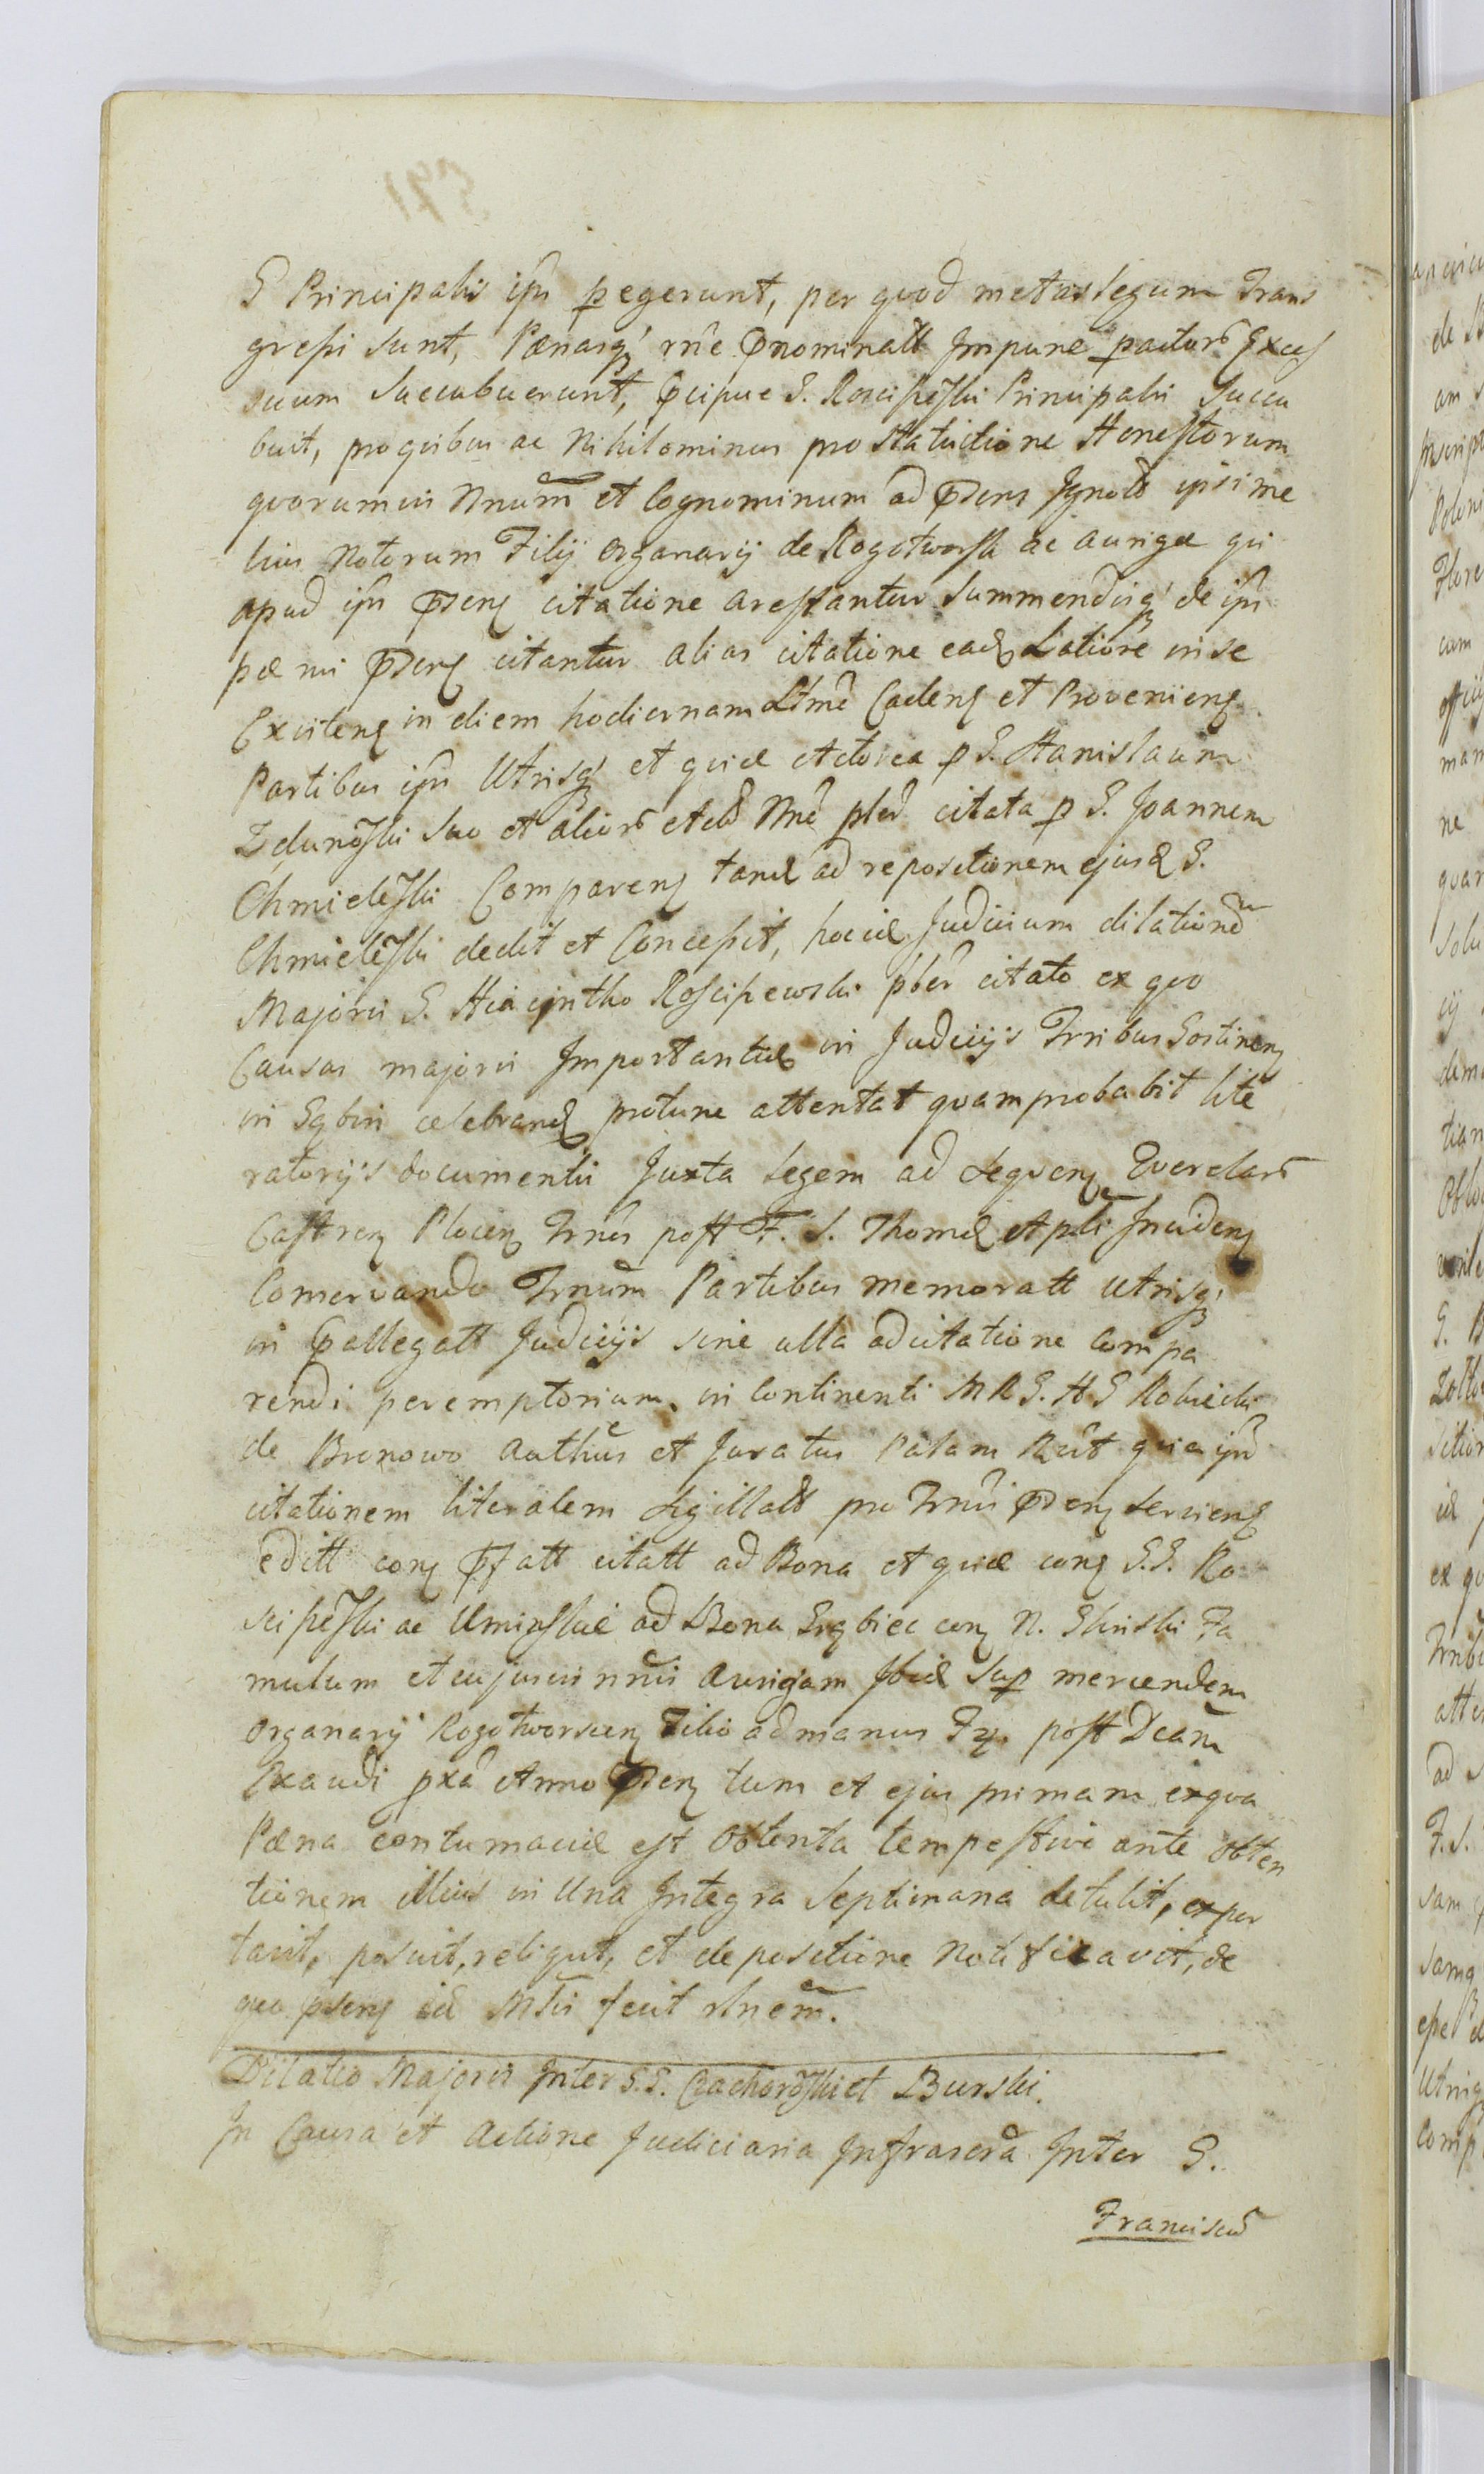 G Principalis ipsi pegerunt, per quod metas legum Trans
gressi sunt, Pænasq rne pnominatt Impune patior Exces
suum Succubuerunt, pcipue G. Rosciszeski Principalis Succu
buit, pro quibus ac Nihilominus pro Statuitione Honestorum
quorumvis Nnum et Cognominum ad psens Ignott ipsi me
lius Notorum Filij Organarij de Rogotworsk ac Aurigæ qui
apud ipsi psenq citatione arestantur Summendisq de ipsi
pænis psenq citantur alias citatione eadq Latiore in se
Existenq in diem hodiernam Ltme Cadenq et Provenienq
Partibus ipsi Utrisq et quidem Actorea p G. Stanislaum
Zdunoski suo et alior Actor Nne pler citata p G. Joannem
Chmieleski Comparenq tand ad repositionem ejusd G.
Chmieleski dedit et Concessit, hocce Judicium dilationem
Majoris G. Hiacintho Rosciszewski pler citato ex quo
Causas majoris Importantiæ in Judicijs Trribus Gostinenq
in Gąbin celebrand protunc attentat quam probabit lite
ratorijs documentis Juxta Legem ad Sequenq Querelar
Castrenq Plocenq Trnos post F. S. Thomæ Apli Incidenq
Conservando Trnum Partibus memoratt Utrisq
in pallegatt Judicijs sine ulla adcitatione Compa
rendi peremptorium, in Continenti MRG. HG Robiecki
de Bronowo Authus et Juratus Palam Rcut quia ipse
citationem literalem Sigillatt pro Trnis psenq Servienq
editt conq pfatt citatt ad Bona et quid conq G.G. Ro
sciszeski ac Uminskie ad Bona Srebiec conq N. Slinski Fa
mulum et cujusvis nnis Aurigam Ibid Sup mercendem
Organarij Rogotworscenq Filio ad manus F. 4. post Dcam
Exaudi pxa Anno psenq tum et ejus primam ex qua
Pæna contumaciæ est Obtenta tempestive ante Obten
tionem illius in Una Integra Septimana detulit, expor
tavit, posuit, reliqut, et depositione Notificavit, de
quo psenq id Mtri fecit rlnem.
Dilatio Majoris Inter G.G. Ciachoroski et Burski.
In Causa et Actione Judiciaria Infrascra Inter G.
Franciscum